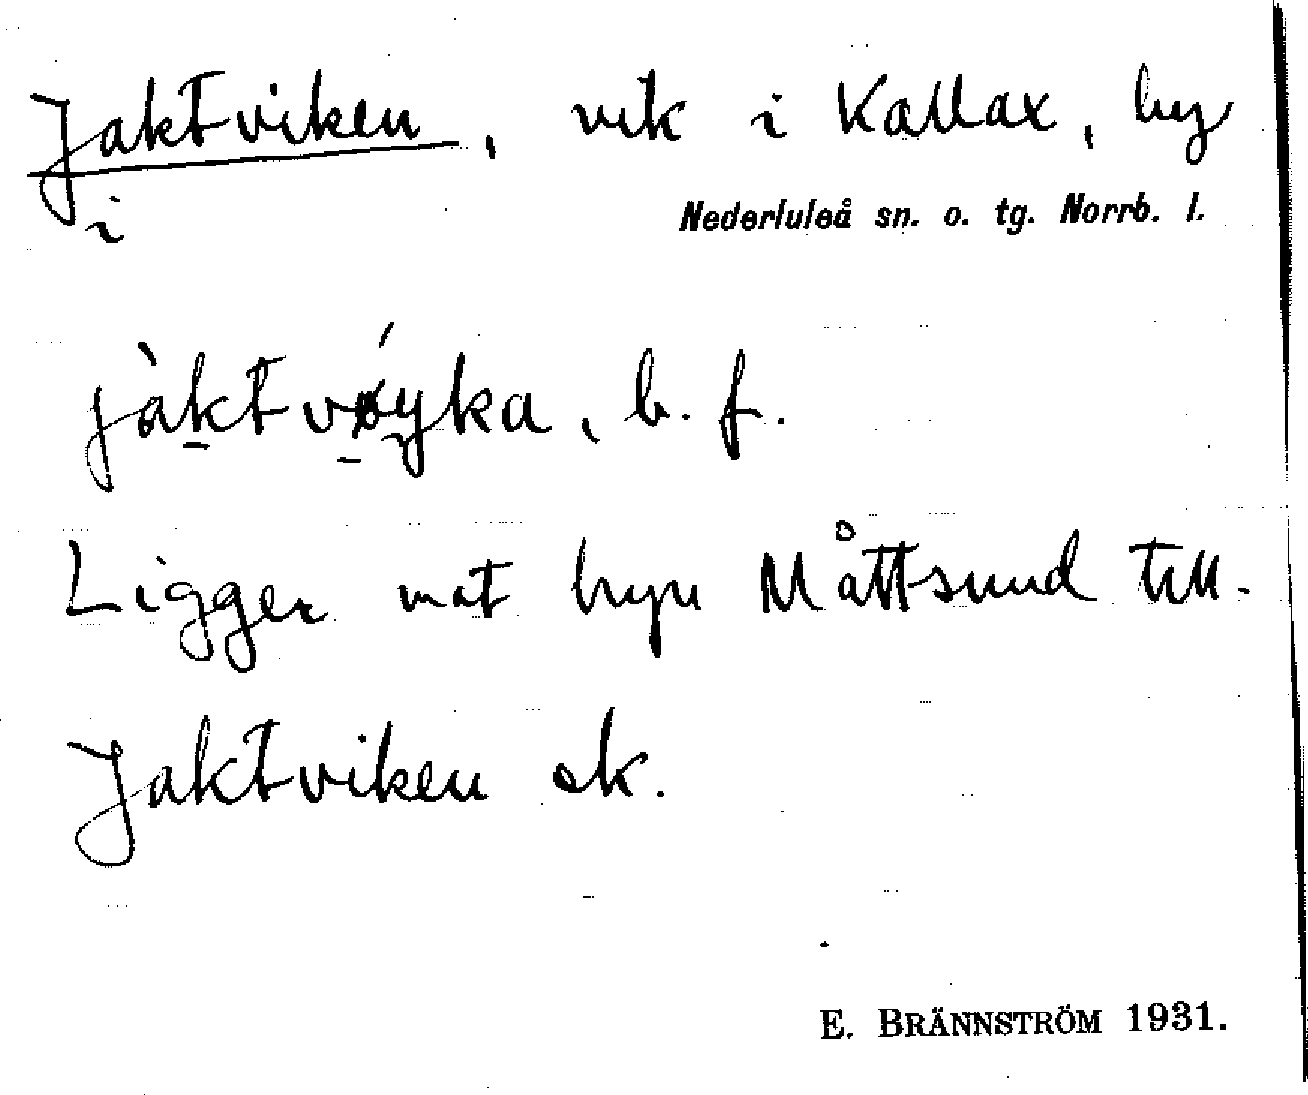 Jaktviken, vik i Kallax, by
i Nederluleå sn. o. tg. Norrb. l.
jàktvǿyka, b. f.
Ligger mot byn Måttsund till.
Jaktviken ek.
E. BRÄNNSTRÖM 1931.